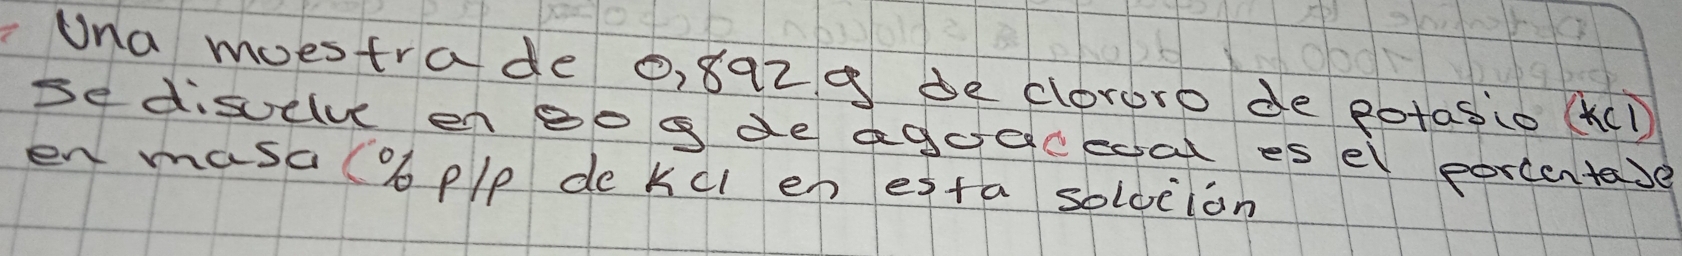 Una muestra de 0,892 g de cloruro de potasio (kcl)
se disuelve en 80 g de agua ¿cual es el porcentaje
en masa (% p/p de Kcl en esta solución